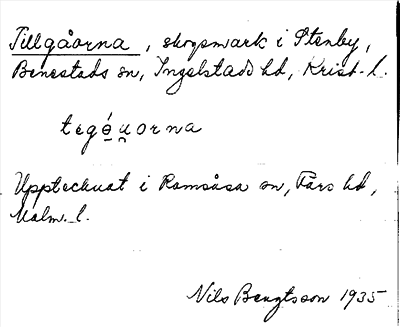 Tillgåorna, skogsmark i Stenby,
Benestads sn, Ingelstads hd, Krist. l.
tegé̱u̯orna
Upptecknat i Ramsåsa sn, Färs hd,
Malm. l.
Nils Bengtsson 1935